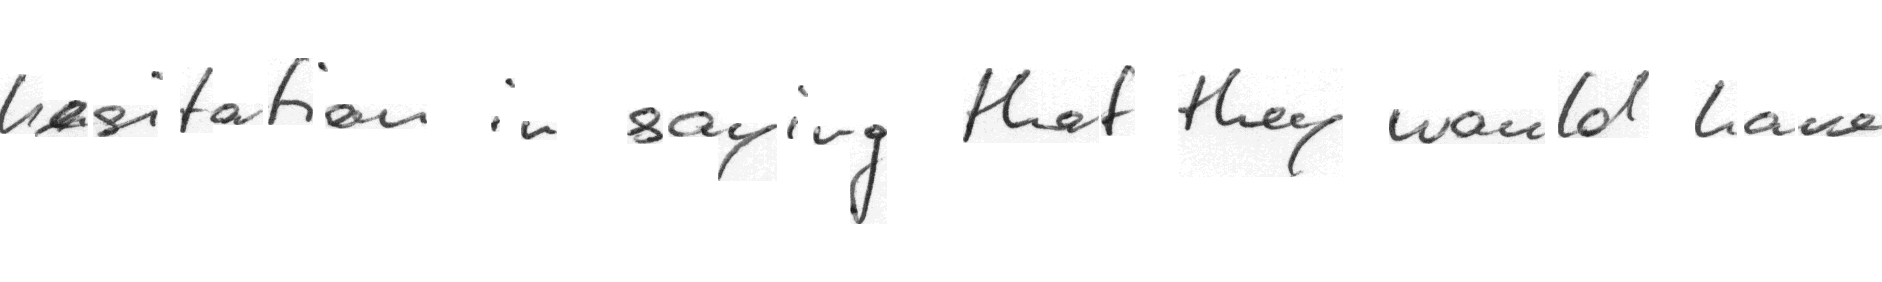 hesitation in saying that they would have